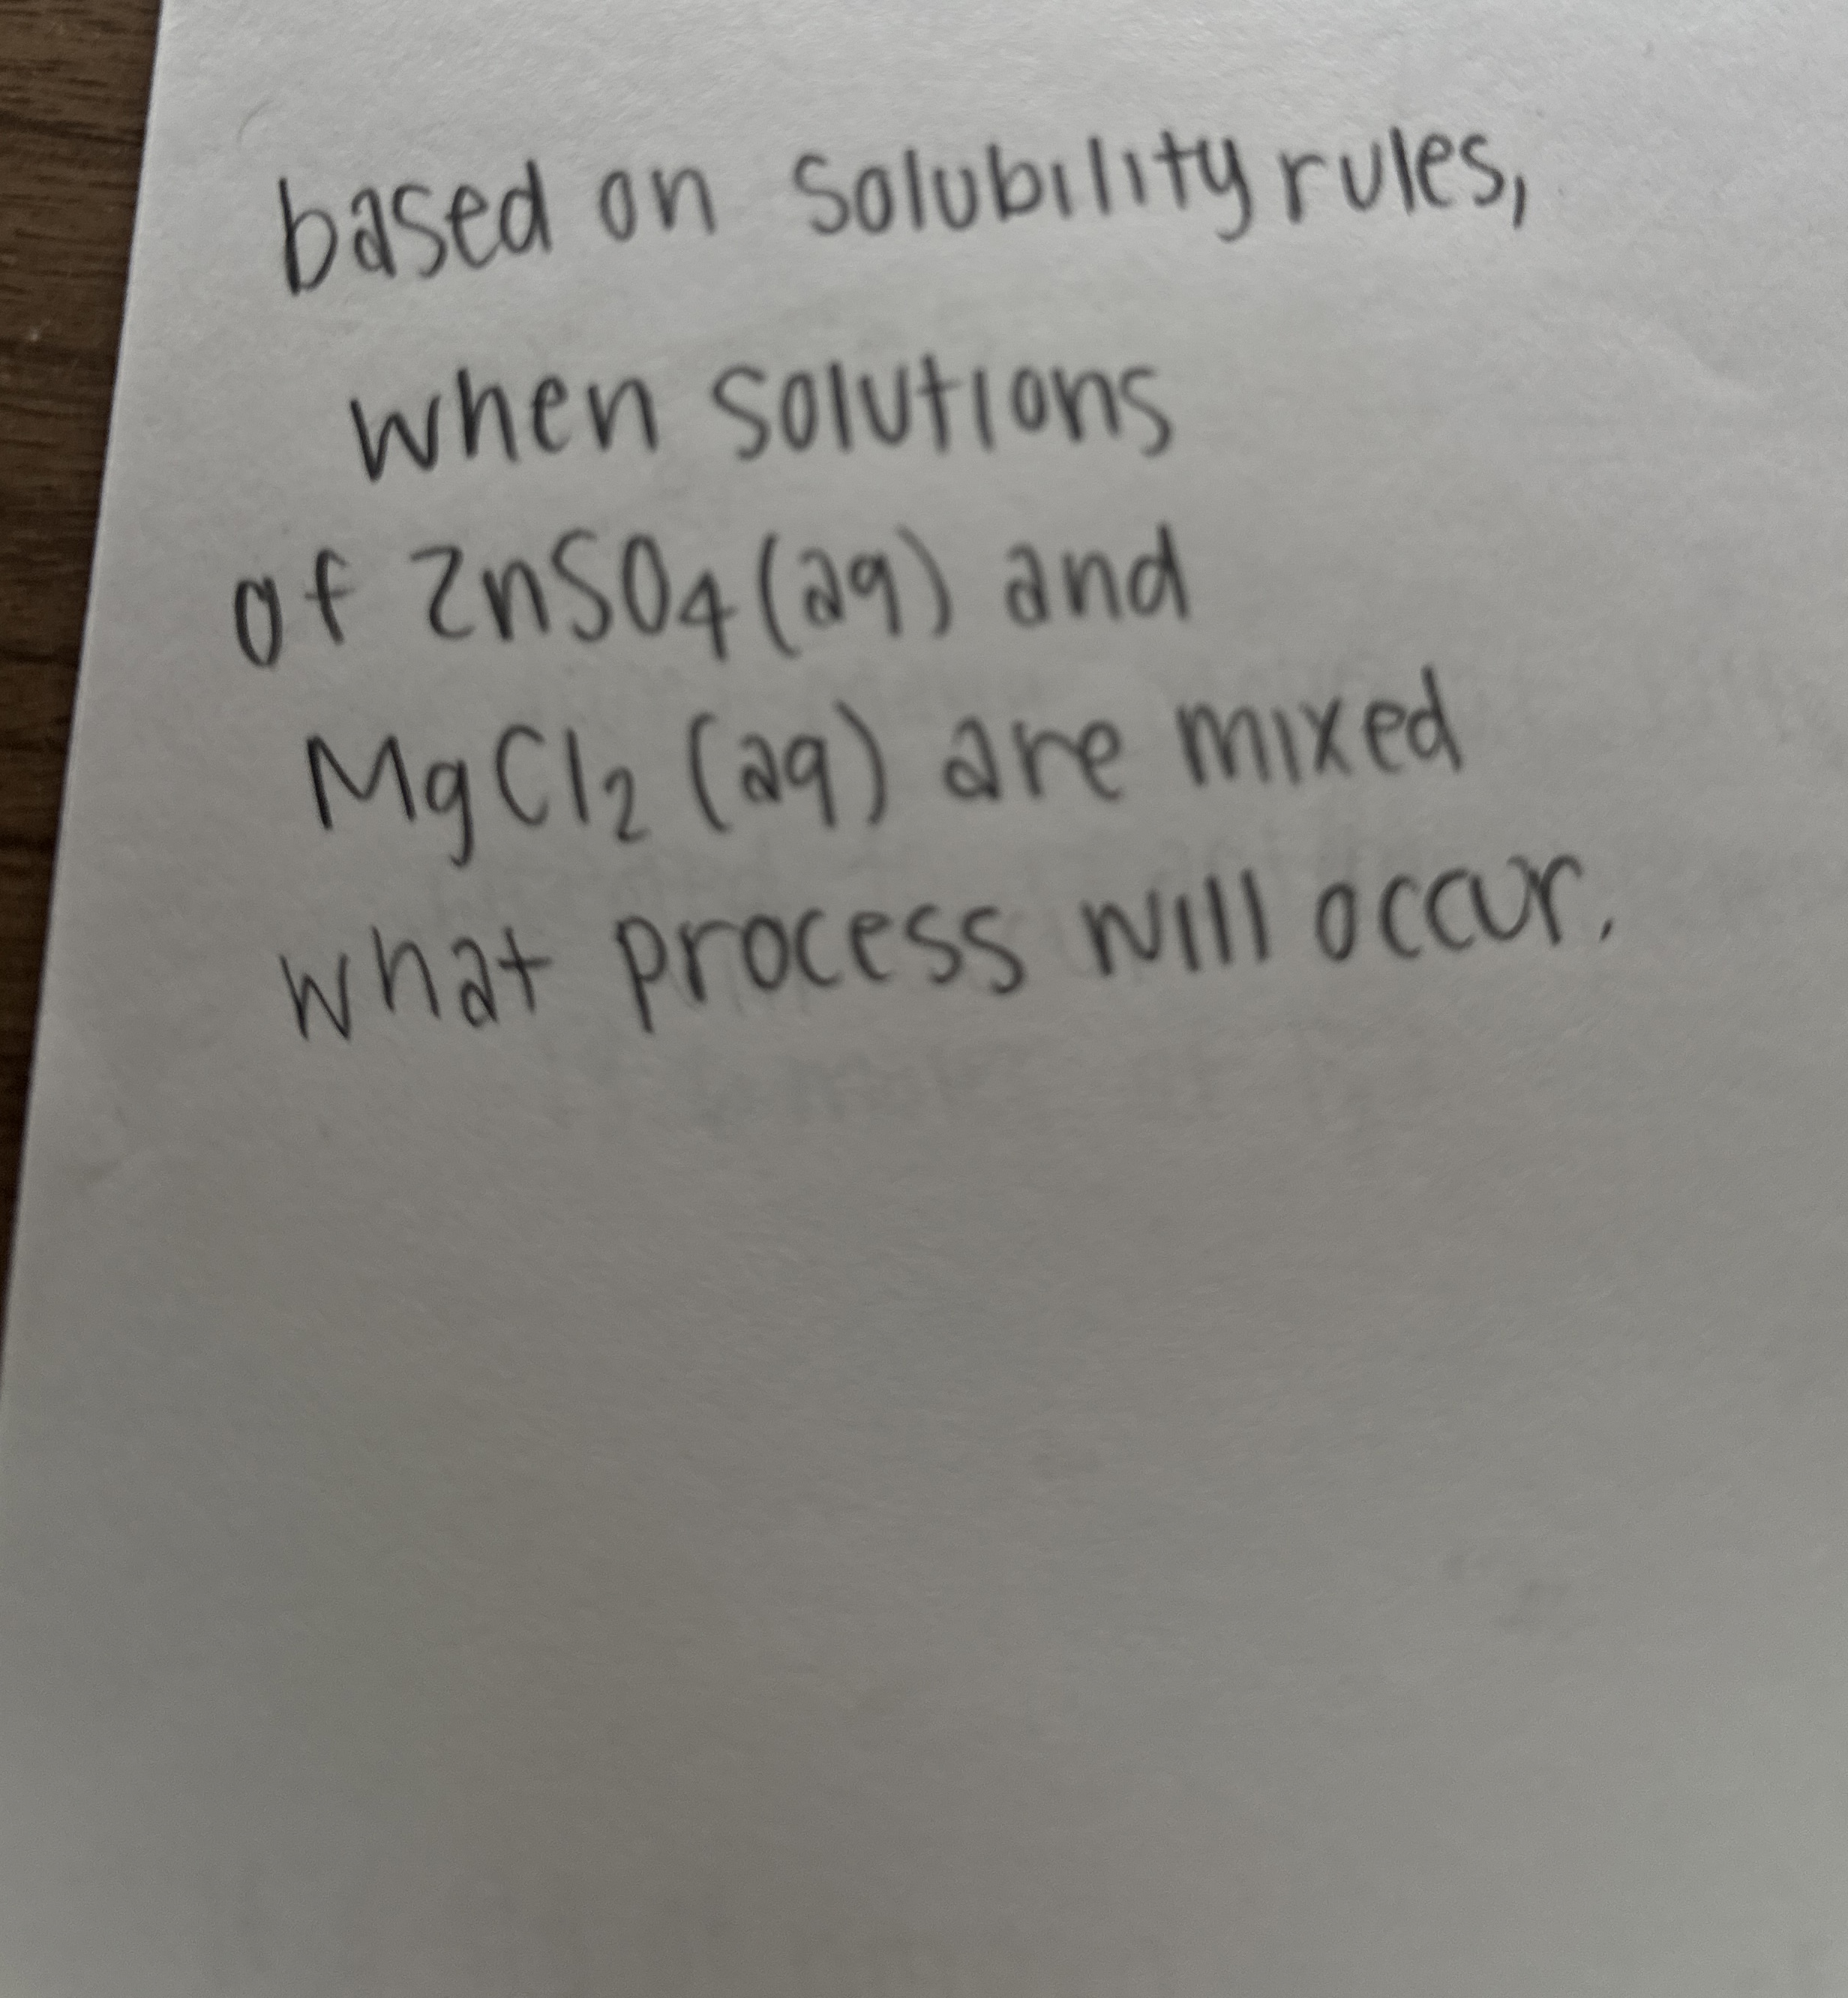 based on solubility rules,
when solutions
of ZnSO4(aq) and
MgCl2 (aq) are mixed
what process will occur.